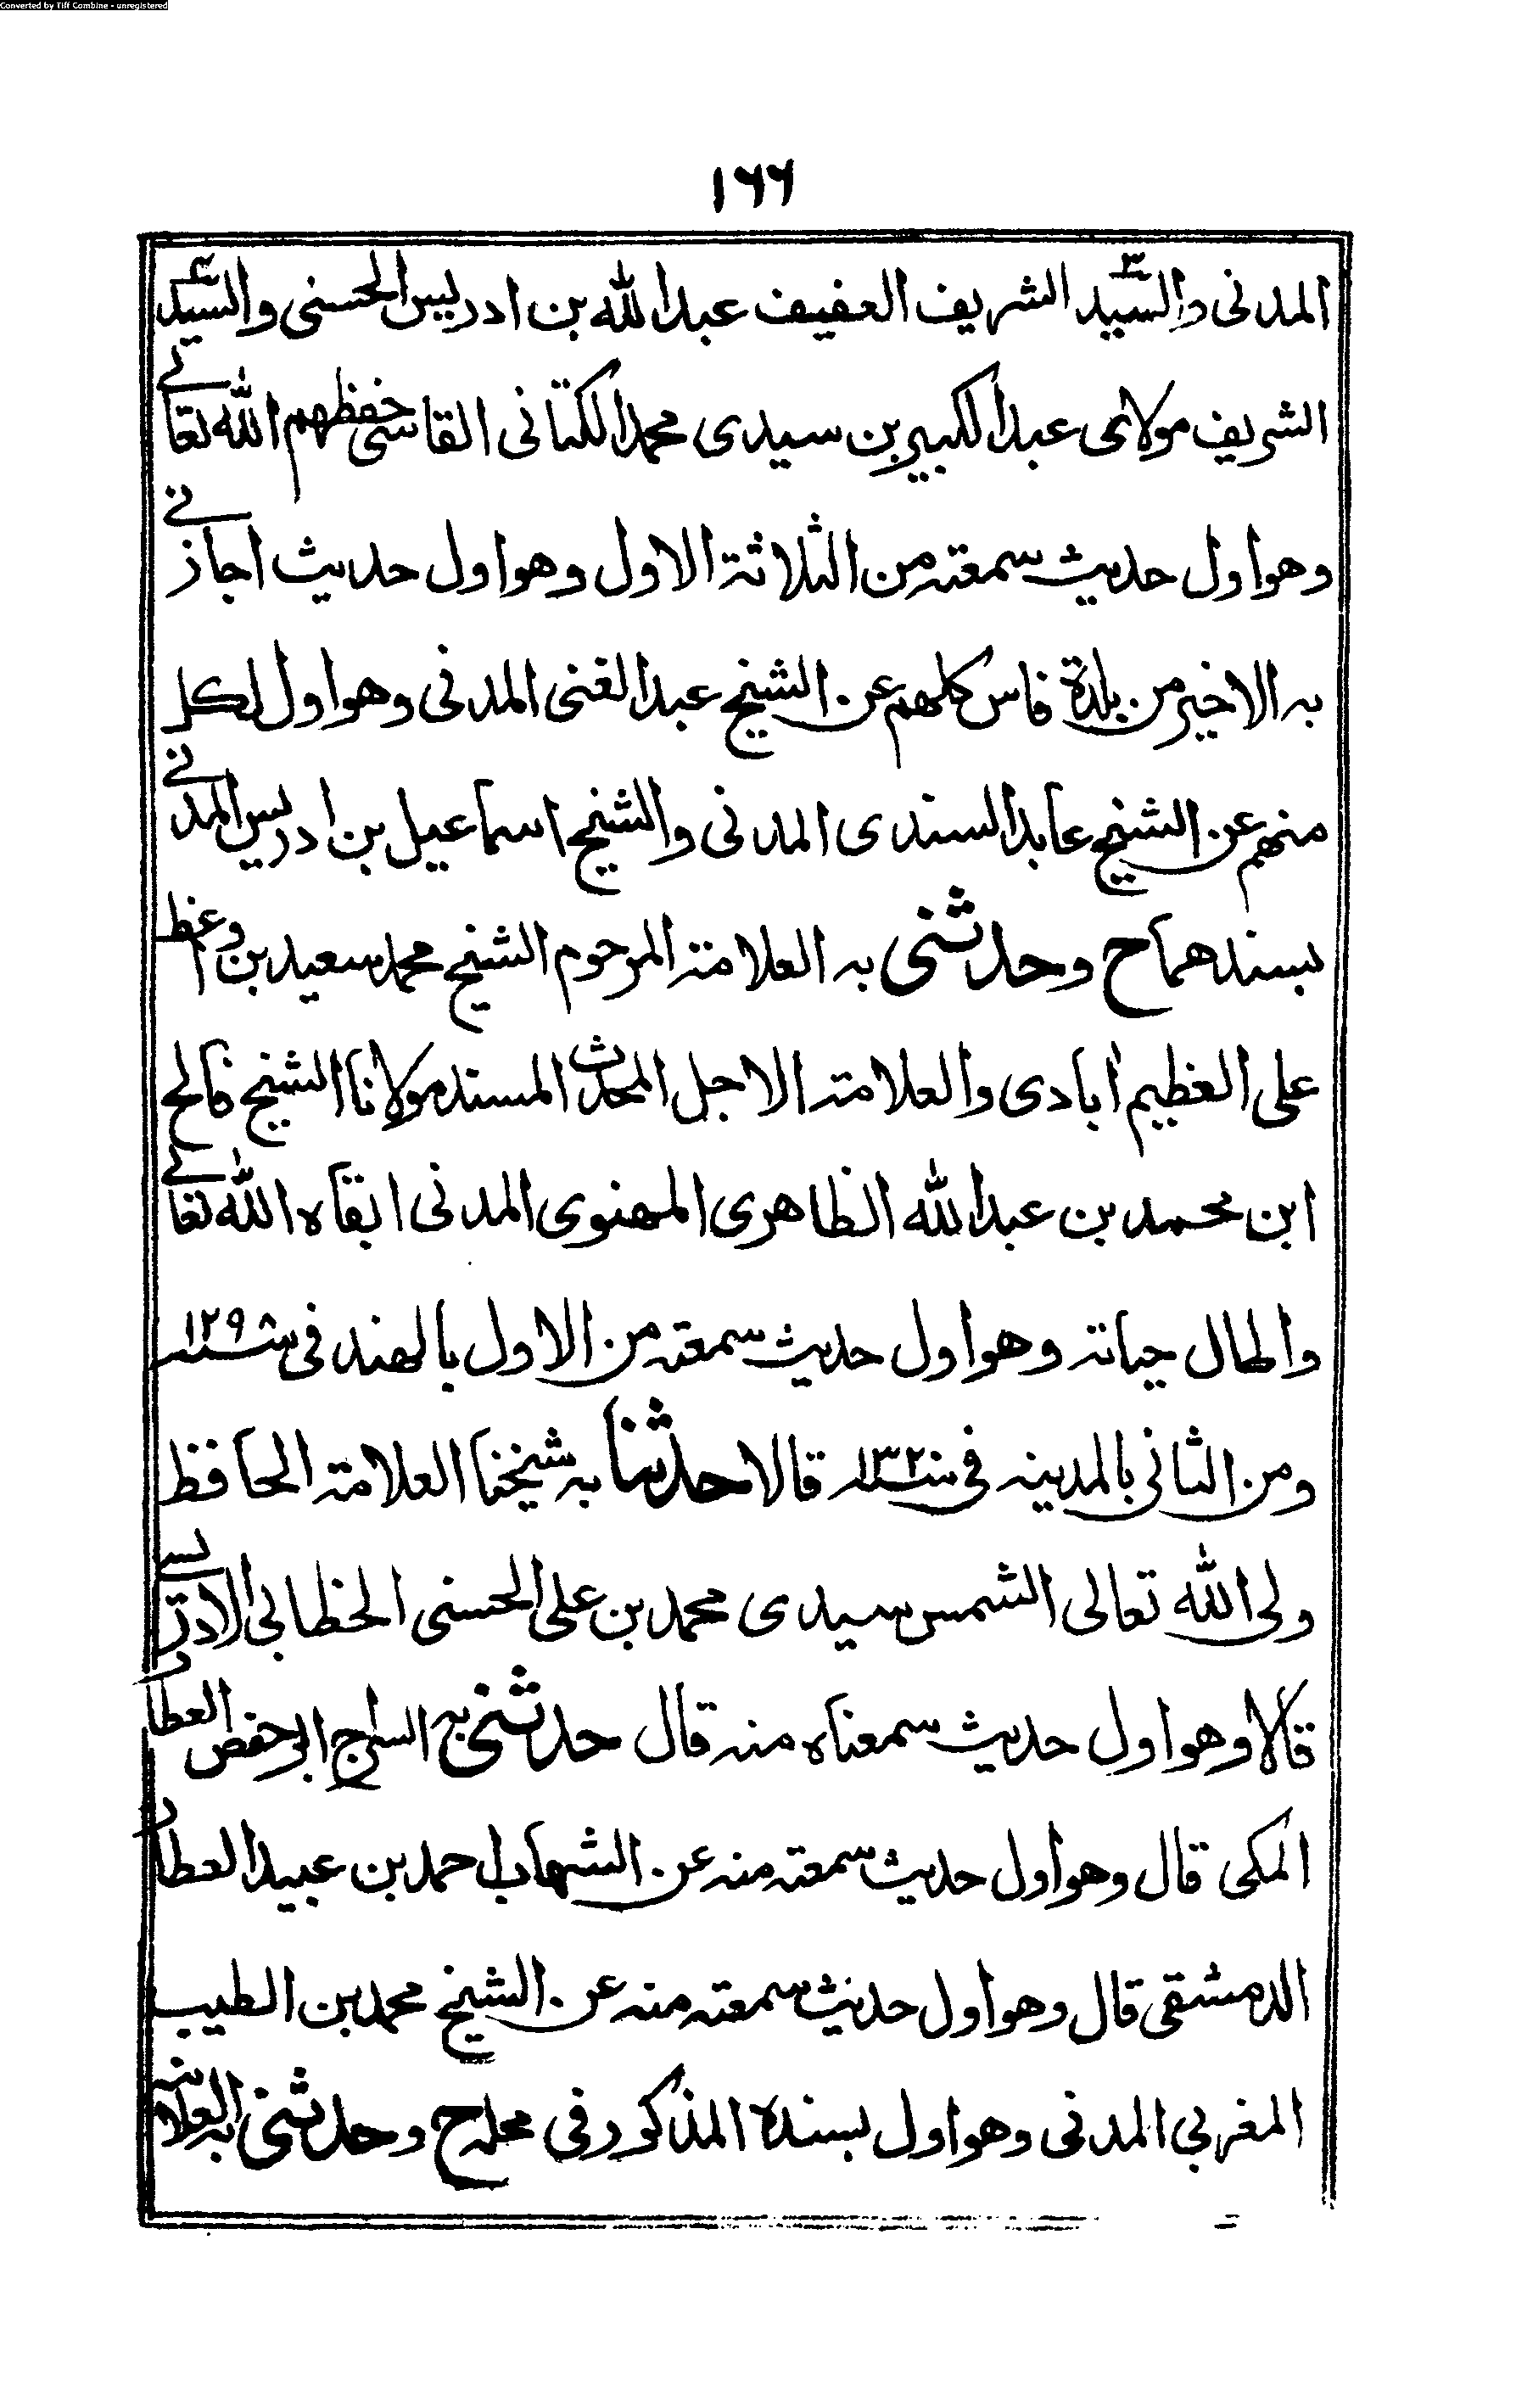 Converted by Tiff Combine - unregistered
١٦٦
المدنى والسيد٣ الشريف العفيف عبدالله بن ادريس الحسنى والسيد٤
الشريف مولاى عبدالكبير بن سيدى محمدالكتانى الفاسى حفظهم الله تعالے
وهواول حديث سمعته من الثلاثة الاول وهواول حديث اجازنے
به الاخير من بلدة فاس كلهم عن الشيخ عبدالغنى المدنى وهواول لكل
منهم عن الشيخ عابدالسندى المدنى والشيخ اسماعيل بن ادريس المدنے
بسندهما ح وحدثنى به العلامة المرحوم الشيخ محمدسعيدبن واعظ
على العظيم ابادى والعلامة الاجل المحدث المسند مولانا الشيخ فالح
ابن محمدبن عبدالله الظاهرى المهنوى المدنى ابقاه الله تعالے
واطال حياته وهواول حديث سمعته من الاول بالهند فى سنة ١٢٩
ومن الثانى بالمدينه فى سنة ١٣٢ قالا حدثنا به شيخنا العلامة الحافظ
ولى الله تعالى الشمس سيدى محمدبن على الحسنى الخطابى الادريسے
قالا وهواول حديث سمعناه منه قال حدثنى به السراج ابوحفص العطار
المكى قال وهواول حديث سمعته منه عن الشهاب احمدبن عبيدالعطار
الدمشقى قال وهواول حديث سمعته منه عن الشيخ محمدبن الطيب
المغربى المدنى وهواول بسنده المذكور فى محله ح وحدثنى به العلامة